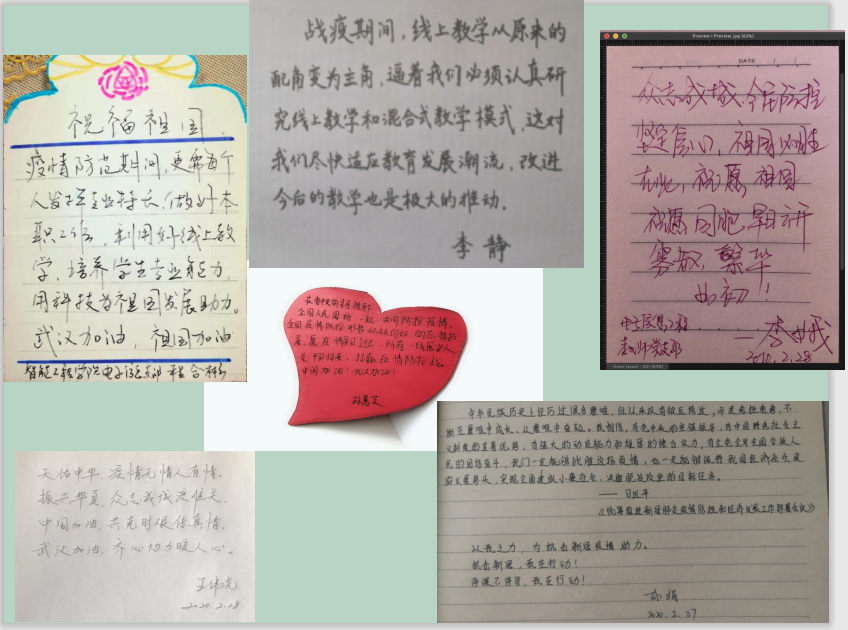 祝福祖国
疫情防范期间,更需每个
人发挥专业特长,做好本
职工作,利用好线上教
学,培养学生专业能力,
用科技为祖国发展助力。
武汉加油,祖国加油
战疫期间,线上教学从原来的
配角变为主角,逼着我们必须认真研
究线上教学和混合式教学模式,这对
我们尽快适应教育发展潮流,改进
今后的教学也是极大的推动。
李静
Preview • Preview.jpg
DATE
众志成城,全民防控
坚定信心,祖国必胜
在此,祝愿祖国
祝愿同胞,早日讲
雾散,繁华
如初!!
2020.2.28
全国人民团结一起共同防控疫情,
中国加油!武汉加油!
孙惠芝
天佑中华,疫情无情人有情。
振兴华夏,众志成城渡难关。
中国加油,共克时艰传真情。
武汉加油,齐心协力暖人心。
2020.2.28
中华民族历史上经历过很多磨难,但从来没有被压垮过,而是愈挫愈勇,不
断在磨难中成长、从磨难中奋起。我相信,有党中央的坚强领导,有中国特色社会主
义制度的显著优势,有强大的动员能力和雄厚的综合实力,有全党全军全国各族人
民的团结奋斗,我们一定能够战胜这场疫情,也一定能够保持我国经济社会良
好发展势头,实现全面建成小康社会、决胜脱贫攻坚的目标任务。
—— 习近平
《统筹推进新冠肺炎疫情防控和经济社会发展工作部署会议》
以我之力,为抗击新冠疫情助力。
抗击新冠,我在行动!
停课不停学,我在行动!
孙娟
2020.2.27